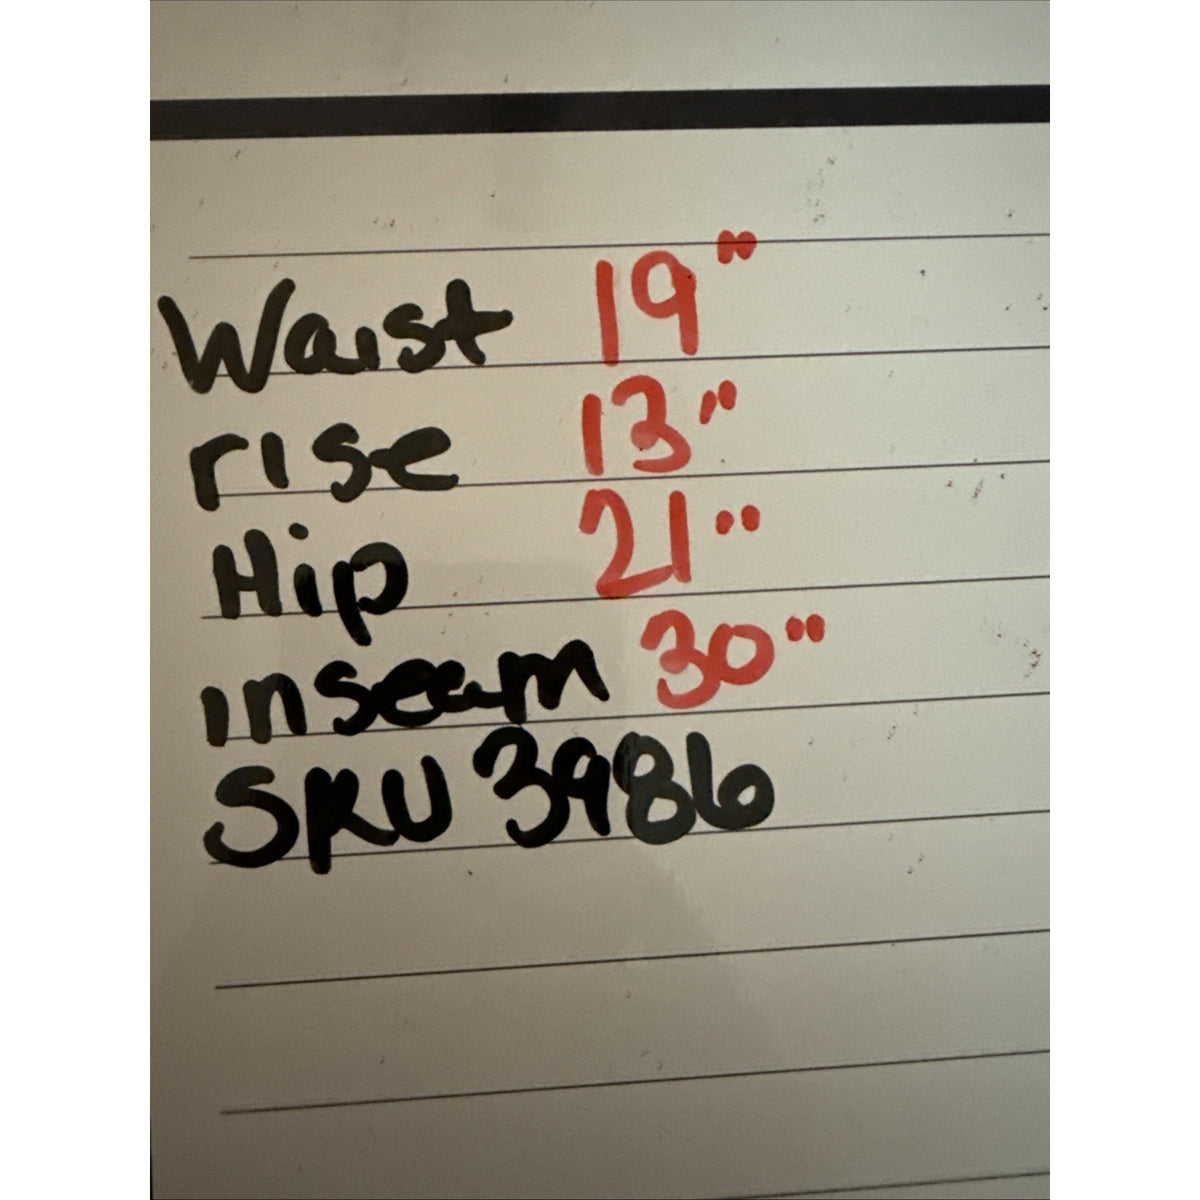 Waist 19"
rise 13"
Hip 21"
inseam 30"
SKU 3986